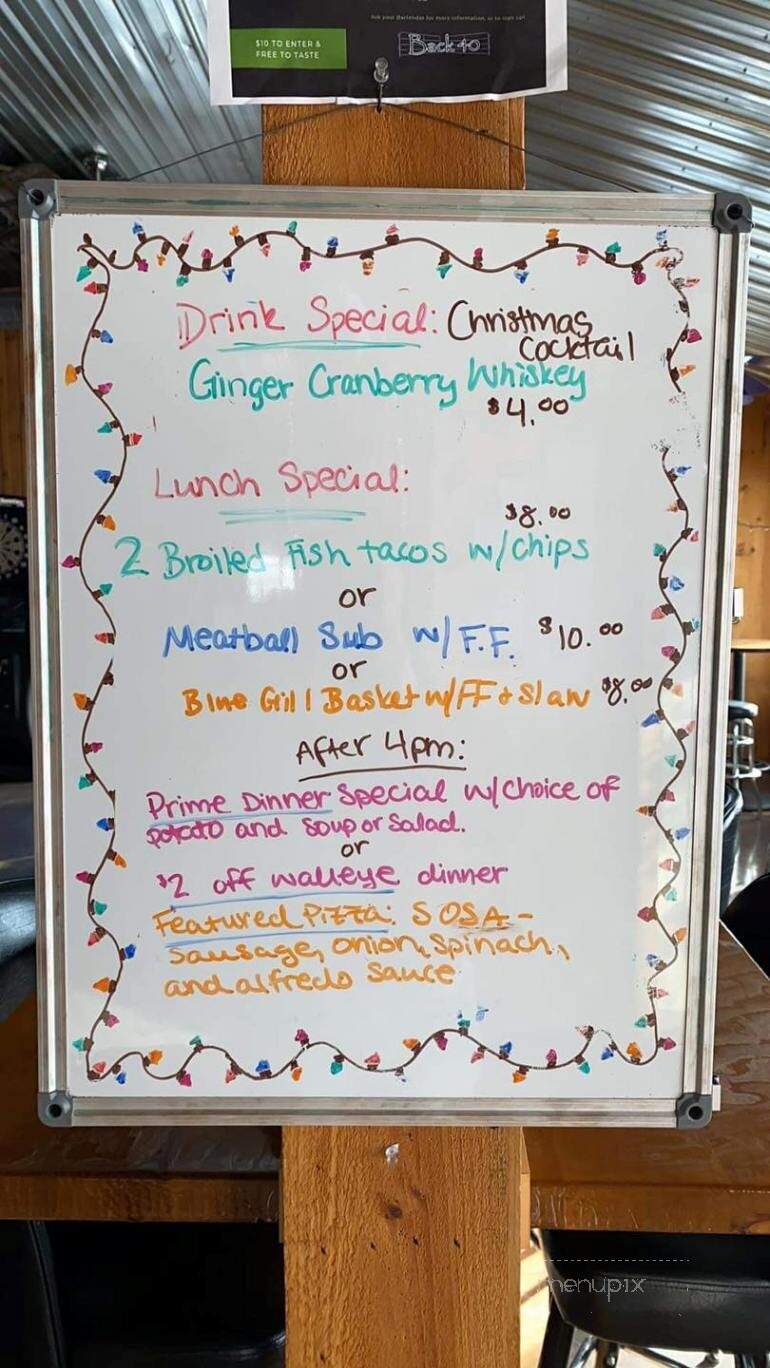 Ask your Bartender for more information, or to sign up!
$10 TO ENTER &
FREE TO TASTE
Back 40
Drink Special: Christmas
Cocktail
Ginger Cranberry Whiskey
$4.00
Lunch Special:
$8.00
2 Broiled Fish tacos w/chips
or
Meatball Sub w/ F.F. $10.00
or
Blue Gill Basket w/FF + Slaw $8.00
After 4pm:
Prime Dinner Special w/choice of
potato and soup or salad.
or
$2 off walleye dinner
Featured Pizza: SOSA -
Sausage, onion, spinach,
and alfredo sauce
menupix